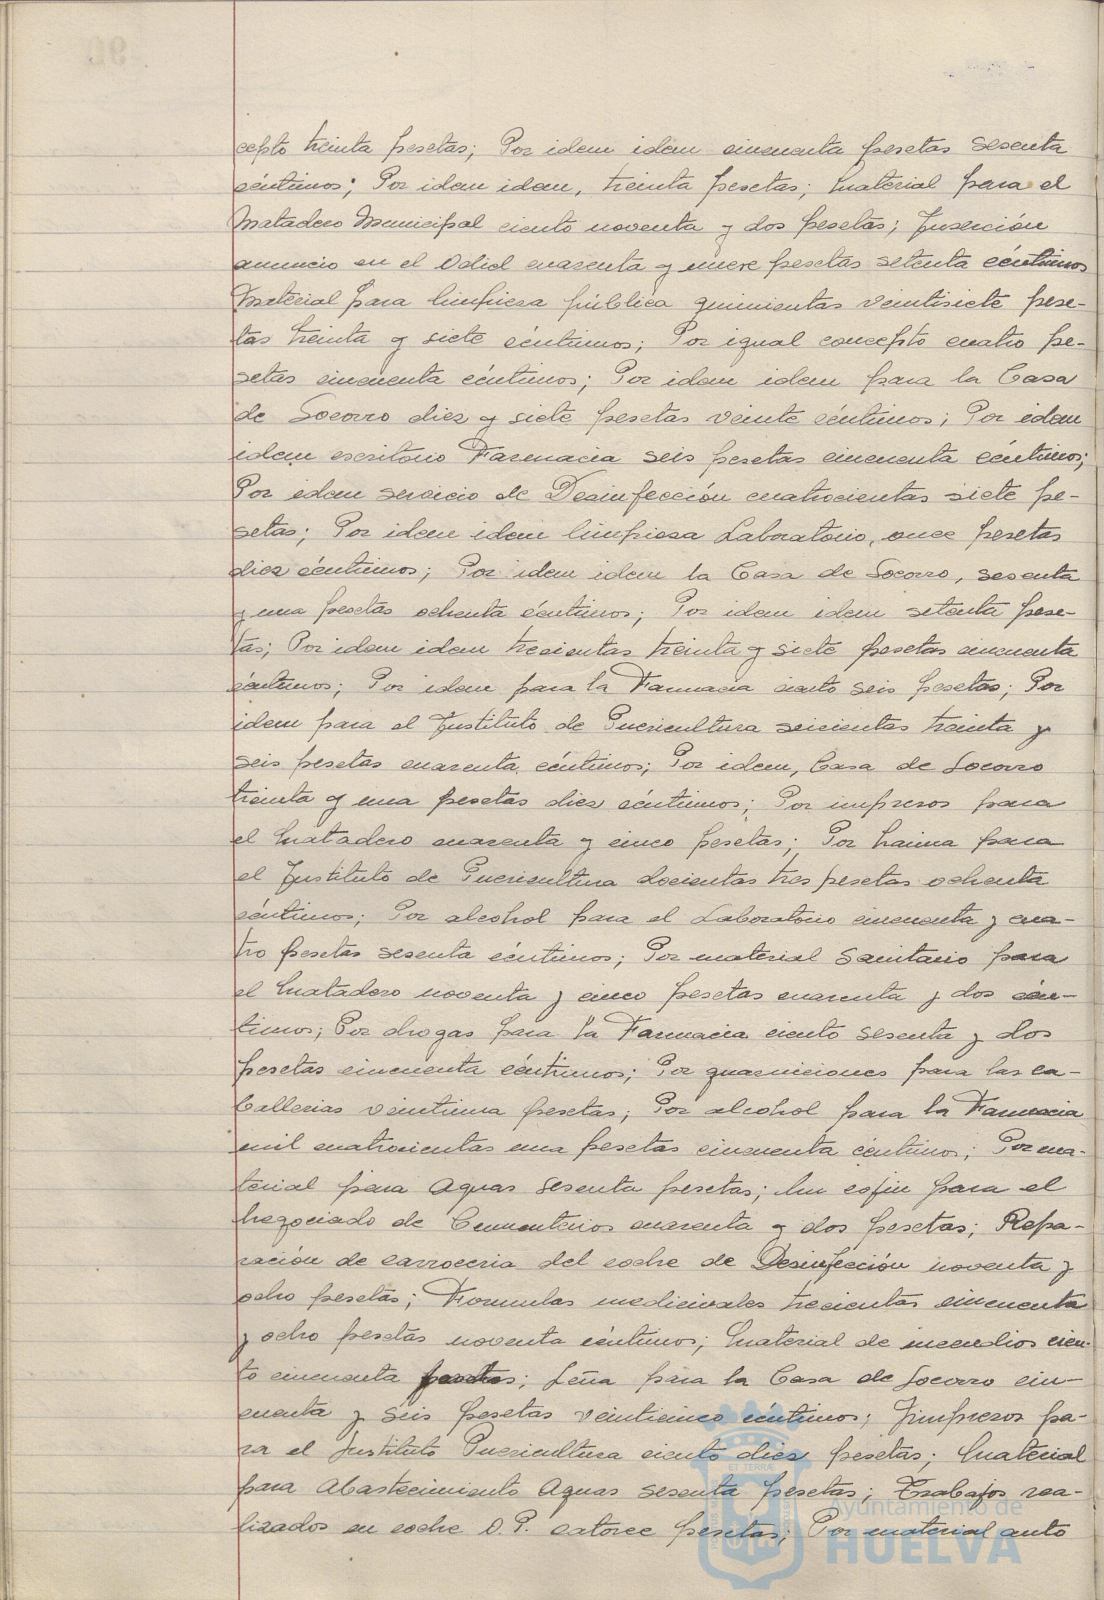 cepto treinta pesetas; Por idem idem cincuenta pesetas sesenta
céntimos; Por idem idem, treinta pesetas; Material para el
Matadero Municipal ciento noventa y dos pesetas; Inserción
anuncio en el Odiel cuarenta y nueve pesetas setenta céntimos
Material para limpieza pública quinientas veintisiete pese-
tas treinta y siete céntimos; Por igual concepto cuatro pe-
setas cincuenta céntimos; Por idem idem para la Casa
de Socorro diez y siete pesetas veinte céntimos; Por idem
idem escritorio Farmacia seis pesetas cincuenta céntimos;
Por idem servicio de Desinfección cuatrocientas siete pe-
setas; Por idem idem limpiesa Laboratorio, once pesetas
diez céntimos; Por idem idem la Casa de Socorro, sesenta
y una pesetas ochenta céntimos; Por idem idem setenta pese-
tas; Por idem idem trecientas treinta y siete pesetas cincuenta
céntimos; Por idem para la Farmacia ciento seis pesetas; Por
idem para el Instituto de Puericultura seicientas treinta y
seis pesetas cuarenta céntimos; Por idem, Casa de Socorro
treinta y una pesetas diez céntimos; Por impresos para
el Matadero cuarenta y cinco pesetas; Por harina para
el Instituto de Puericultura docientas tres pesetas ochenta
céntimos; Por alcohol para el Laboratorio cincuenta y cua-
tro pesetas sesenta céntimos; Por material Sanitario para
el Matadero noventa y cinco pesetas cuarenta y dos cén-
timos; Por drogas para la Farmacia ciento sesenta y dos
pesetas cincuenta céntimos; Por guarniciones para las ca-
ballerias veintiuna pesetas; Por alcohol para la Farmacia
mil cuatrocientas una pesetas cincuenta céntimos; Por ma-
terial para Aguas sesenta pesetas; Un cojin para el
Negociado de Cementerios cuarenta y dos pesetas; Repa-
ración de carroceria del coche de Desinfección noventa y
ocho pesetas; Formulas medicinales trecientas cincuenta
y ocho pesetas noventa céntimos; Material de incendios cien-
to cincuenta pesetas; Leña para la Casa de Socorro cin-
cuenta y seis pesetas veinticinco céntimos; Impresos pa-
ra el Instituto Puericultura ciento diez pesetas; Material
para Abastecimiento Aguas sesenta pesetas; Trabajos rea-
lizados en coche O.P. catorce pesetas; Por material auto
Ayuntamiento de
HUELVA